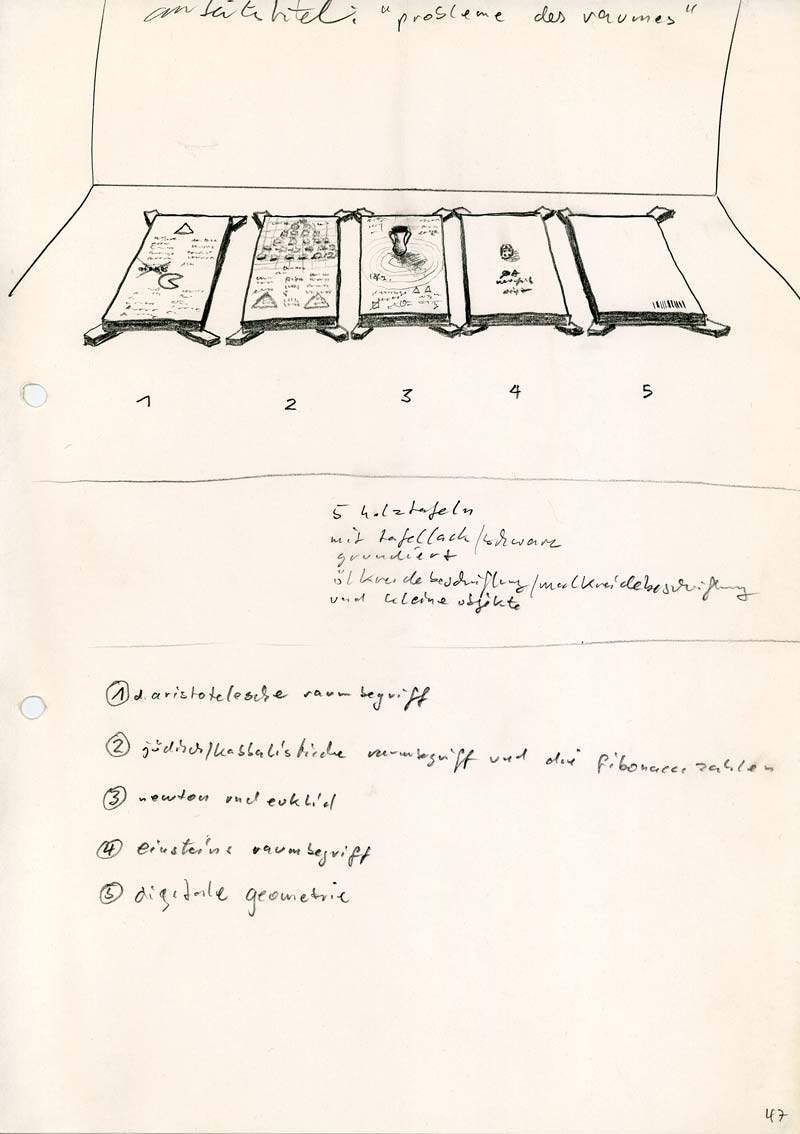 arbeitstitel: "probleme des raumes"
1 2 3 4 5
5 holztafeln
mit tafellack/schwarz
grundiert
ölkreidebeschriftung/malkreidebeschriftung
und kleine objekte
① d. aristotelesche raumbegriff
② jüdisch/kabbalistische raumbegriff und die fibonacci zahlen
③ newton und euklid
④ einsteins raumbegriff
⑤ digitale geometrie
47